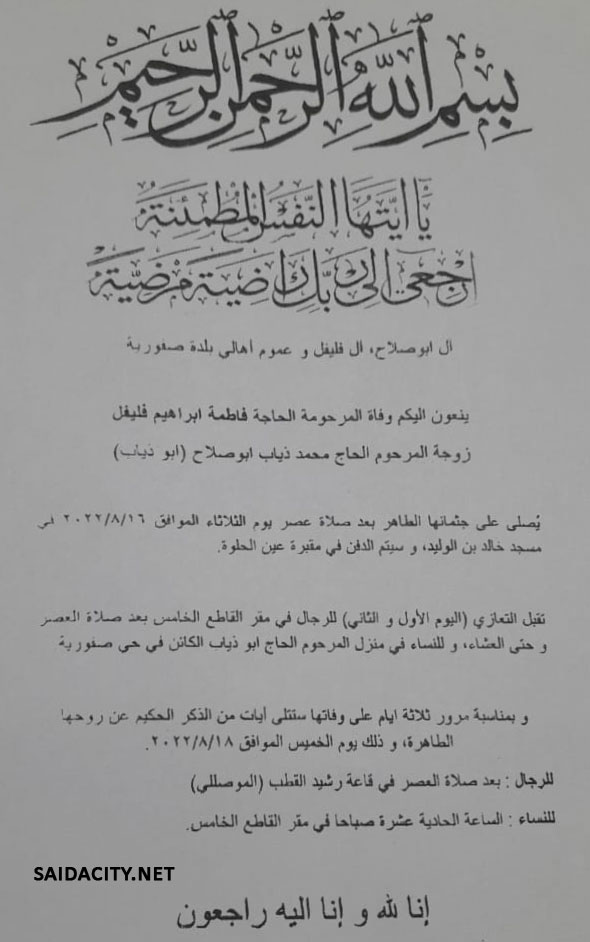 بِسْمِ ٱللَّهِ ٱلرَّحْمَٰنِ ٱلرَّحِيمِ
يَا أَيَّتُهَا النَّفْسُ الْمُطْمَئِنَّةُ
ارْجِعِي إِلَى رَبِّكِ رَاضِيَةً مَرْضِيَّةً
آل ابوصلاح، آل فليفل و عموم أهالي بلدة صفورية
ينعون اليكم وفاة المرحومة الحاجة فاطمة ابراهيم فليفل
زوجة المرحوم الحاج محمد ذياب ابوصلاح (ابو ذياب)
يُصلى على جثمانها الطاهر بعد صلاة عصر يوم الثلاثاء الموافق ٢٠٢٢/٨/١٦ في
مسجد خالد بن الوليد، و سيتم الدفن في مقبرة عين الحلوة.
تقبل التعازي (اليوم الأول و الثاني) للرجال في مقر القاطع الخامس بعد صلاة العصر
و حتى العشاء، و للنساء في منزل المرحوم الحاج ابو ذياب الكائن في حي صفورية
و بمناسبة مرور ثلاثة ايام على وفاتها ستتلى أيات من الذكر الحكيم عن روحها
الطاهرة، و ذلك يوم الخميس الموافق ٢٠٢٢/٨/١٨.
للرجال : بعد صلاة العصر في قاعة رشيد القطب (الموصللي)
للنساء : الساعة الحادية عشرة صباحا في مقر القاطع الخامس.
SAIDACITY.NET
إنا لله و إنا اليه راجعون